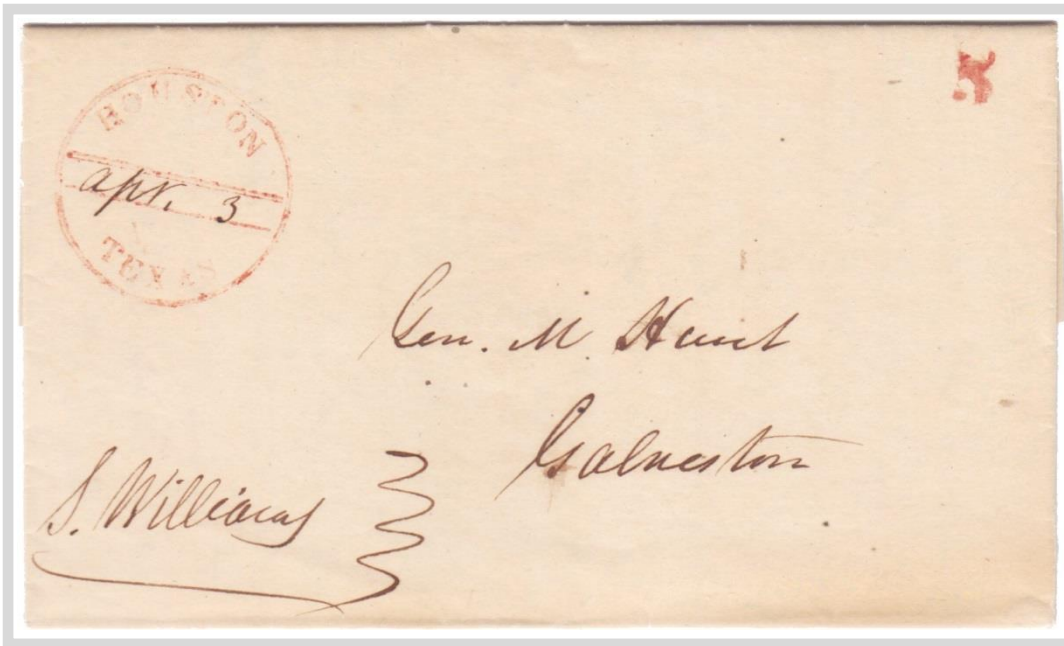 HOUSTON
apr. 3
TEXAS
5
Gen. M. Hunt
Galveston
S. Williams